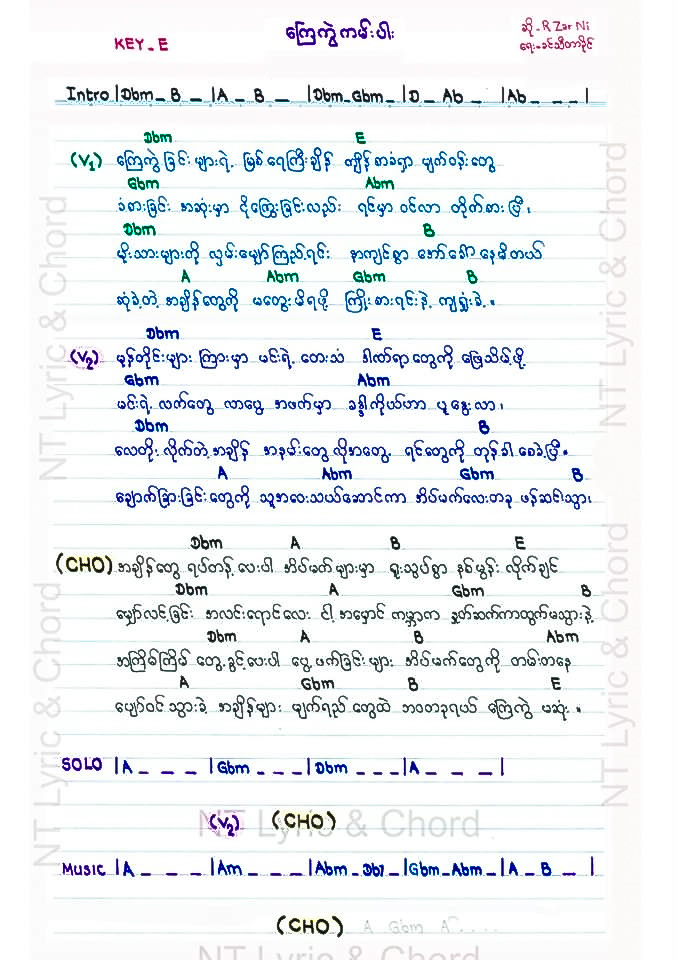 ကြေကွဲကမ်းပါး
ဆို - R Zar Ni
KEY_E
ရေး - ခင်သီတာခိုင်
Intro |Dbm_ B _ |A _ B _ |Dbm_Gbm_ |D _ Ab _ |Ab_ _ _ |
Dbm E
(V1) ကြေကွဲခြင်းများရဲ့ မြစ်ရေကြီးချိန် ကျိန်စာခံရှာ မျက်ဝန်းတွေ
Gbm Abm
ခံစားခြင်း အဆုံးမှာ ငိုကြွေးခြင်းလည်း ရင်မှာ ဝင်လာ တိုက်စားပြီ၊
Dbm B
မိုးသားများတို့ လွှမ်းမျှော်ကြည့်ရင်း နာကျင်စွာ အော်ခေါ်နေမိတယ်
A Abm Gbm B
ဆုံခဲ့တဲ့ အချိန်တွေကို မတွေးမိရဖို့ ကြိုးစားရင်းနဲ့ ကျရှုံးခဲ့ ။
Dbm E
(V2) မုန်တိုင်းများ ကြားမှာ မင်းရဲ့ တေးသံ ဒါဏ်ရာတွေကို ဖြေသိမ့်ဖို့
Gbm Abm
မင်းရဲ့ လက်တွေ လာပွေ့ အဖက်မှာ ခန္ဓါကိုယ်ဟာ ပူနွေးလာ၊
Dbm B
လေတိုး လိုက်တဲ့အချိန် အနမ်းတွေ လိုအတွေ့ ရင်တွေကို တုန်ခါစေခဲ့ပြီ။
A Abm Gbm B
ခြောက်ခြားခြင်းတွေကို သူအလေးသယ်ဆောင်ကာ အိပ်မက်လေးတခု ဖန်ဆင်းသွား၊
Dbm A B E
(CHO) အချိန်တွေ ရပ်တန့်ပေးပါ အိပ်မက်များမှာ ရူးသွပ်စွာ နစ်မွန်းလိုက်ချင်
Dbm A Gbm B
မျှော်လင့်ခြင်း အလင်းရောင်လေး ငါ့အမှောင်ကမ္ဘာက နှုတ်ဆက်ကာထွက်မသွားနဲ့
Dbm A B Abm
အကြိမ်ကြိမ် တွေ့ခွင့်ပေးပါ ပွေ့ဖက်ခြင်းများ အိပ်မက်တွေကို တမ်းတနေ
A Gbm B E
ပျော်ဝင်သွားခဲ့ အချိန်များ မျက်ရည်တွေထဲ ဘဝတခုရယ် ကြေကွဲ မဆုံး ။
SOLO |A _ _ _ |Gbm _ _ _ |Dbm _ _ _ |A _ _ _ |
(V2) (CHO)
MUSIC |A _ _ _ |Am _ _ _ |Abm _ Db7 _ |Gbm_Abm_ |A _ B _ |
(CHO) A Gbm A ....
NT Lyric & Chord
NT Lyric & Chord
NT Lyric & Chord
NT Lyric & Chord
NT Lyric & Chord
NT Lyric & Chord